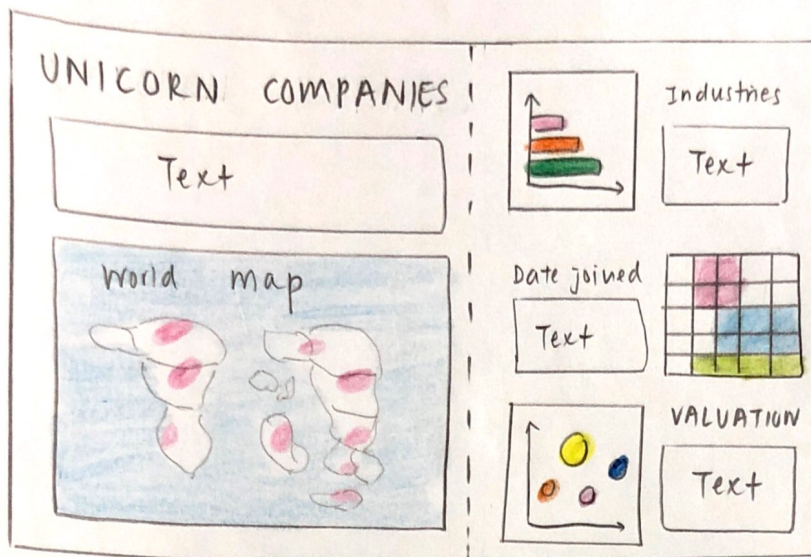 UNICORN COMPANIES
Text
World map
Industries
Text
Date joined
Text
VALUATION
Text